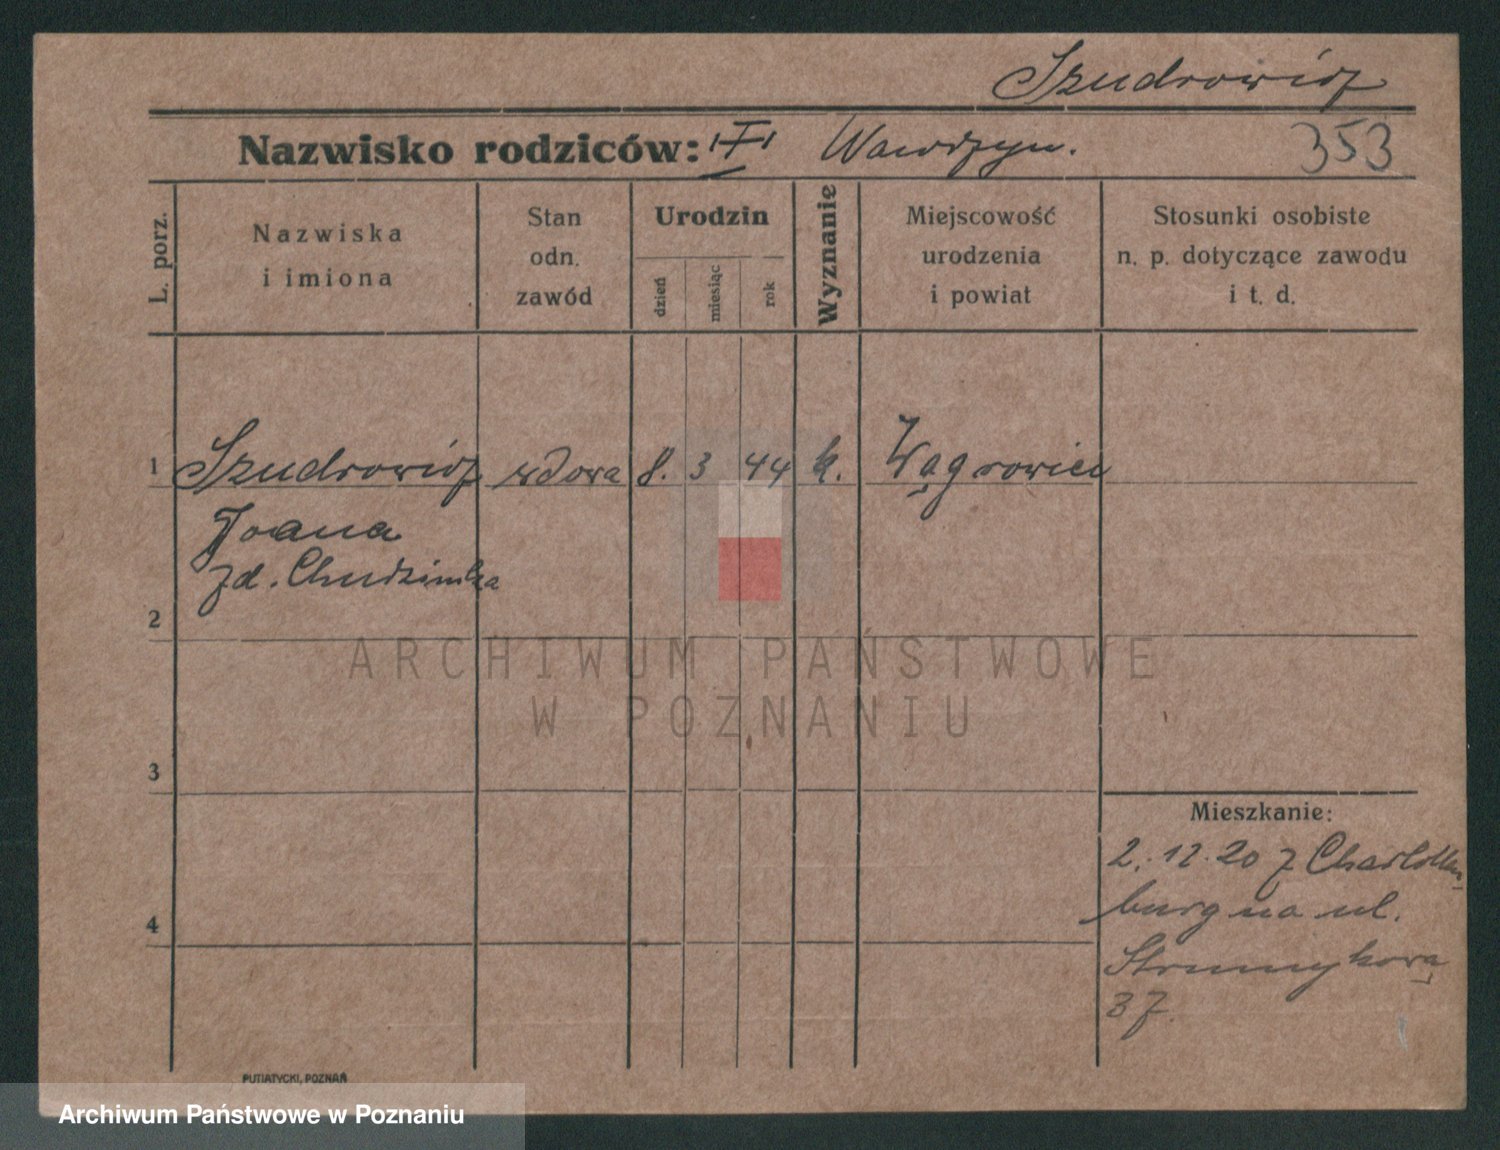 Szudrowicz
Nazwisko rodziców: Wawrzyn. 353
L. porz.
Nazwiska
i imiona
Stan
odn.
zawód
Urodzin
dzień
miesiąc
rok
Wyznanie
Miejscowość
urodzenia
i powiat
Stosunki osobiste
n. p. dotyczące zawodu
i t. d.
1 Szudrowicz wdowa 8. 3 44 k. Wągrowiec
Joana
zd. Chudzimka
2
3
4
Mieszkanie:
2. 12. 20 z Charlotten
burg na ul.
Strumykowa
37
PUTIATYCKI, POZNAŃ
ARCHIWUM PAŃSTWOWE
W POZNANIU
Archiwum Państwowe w Poznaniu